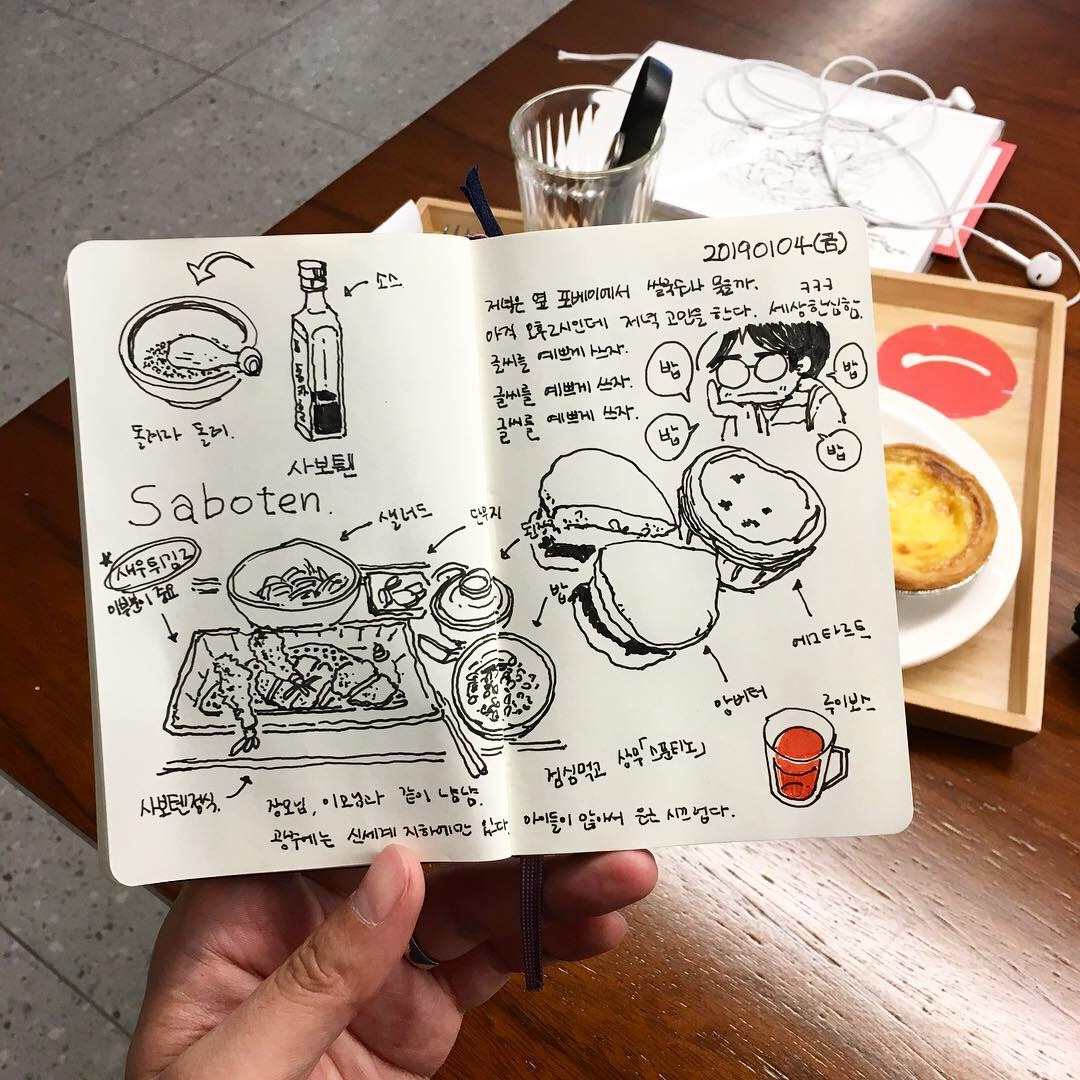 소스
돌려라 돌려.
사보텐
Saboten.
샐러드
단무지
새우튀김
이부분이 중요
사보텐정식.
장모님, 이모님과 같이 냠냠.
광주에는 신세계 지하에만 있다.
20190104(금)
저녁은 옆 포베이에서 쌀국수나 먹을까. ㅋㅋㅋ
아직 오후2시인데 저녁 고민을 한다. 세상한심함.
글씨를 예쁘게 쓰자.
글씨를 예쁘게 쓰자.
글씨를 예쁘게 쓰자.
밥
밥
밥
밥
된장국
밥
에그타르트
앙버터
루이보스
점심먹고 상무「스폰티노」
아이들이 많아서 시끄럽다.